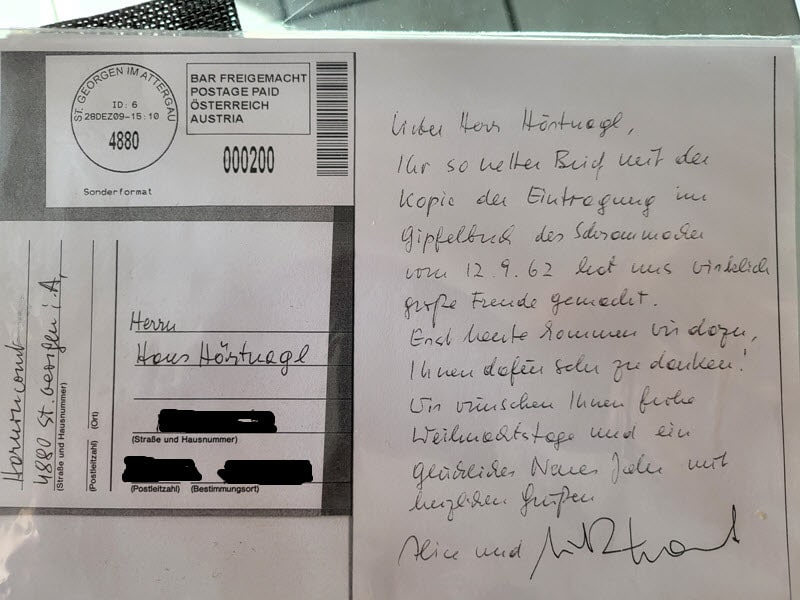 ST. GEORGEN IM ATTERGAU
ID: 6
28DEZ09-15:10
4880
Sonderformat
BAR FREIGEMACHT
POSTAGE PAID
ÖSTERREICH
AUSTRIA
000200
4880 St. Georgen i. A.
(Straße und Hausnummer)
(Postleitzahl) (Ort)
Herrn
Hans Hörtnagl
(Straße und Hausnummer)
(Postleitzahl) (Bestimmungsort)
Lieber Herr Hörtnagl,
Ihr so netter Brief mit der
Kopie der Eintragung im
Gipfelbuch des Schrammacher
vom 12.9.62 hat uns wirklich
große Freude gemacht.
Erst heute kommen wir dazu,
Ihnen dafür sehr zu danken!
Wir wünschen Ihnen frohe
Weihnachtstage und ein
glückliches Neues Jahr mit
herzlichen Grüßen
Alice und